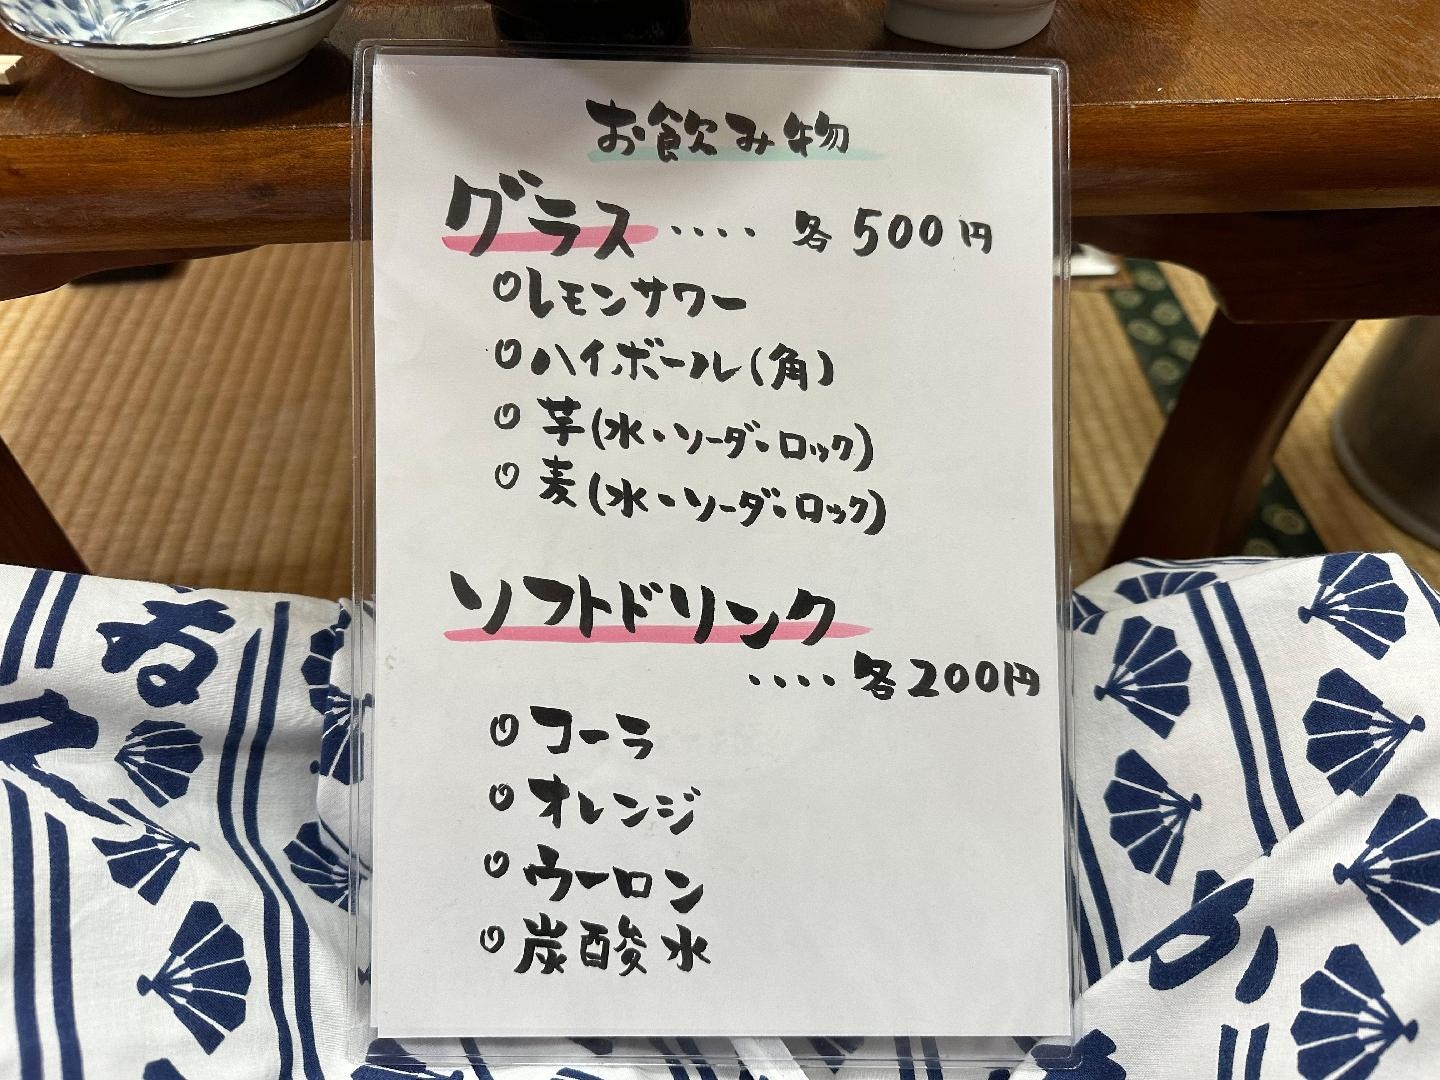 お飲み物
グラス････各500円
○レモンサワー
○ハイボール(角)
○芋(水・ソーダ・ロック)
○麦(水・ソーダ・ロック)
ソフトドリンク
････各200円
○コーラ
○オレンジ
○ウーロン
○炭酸水